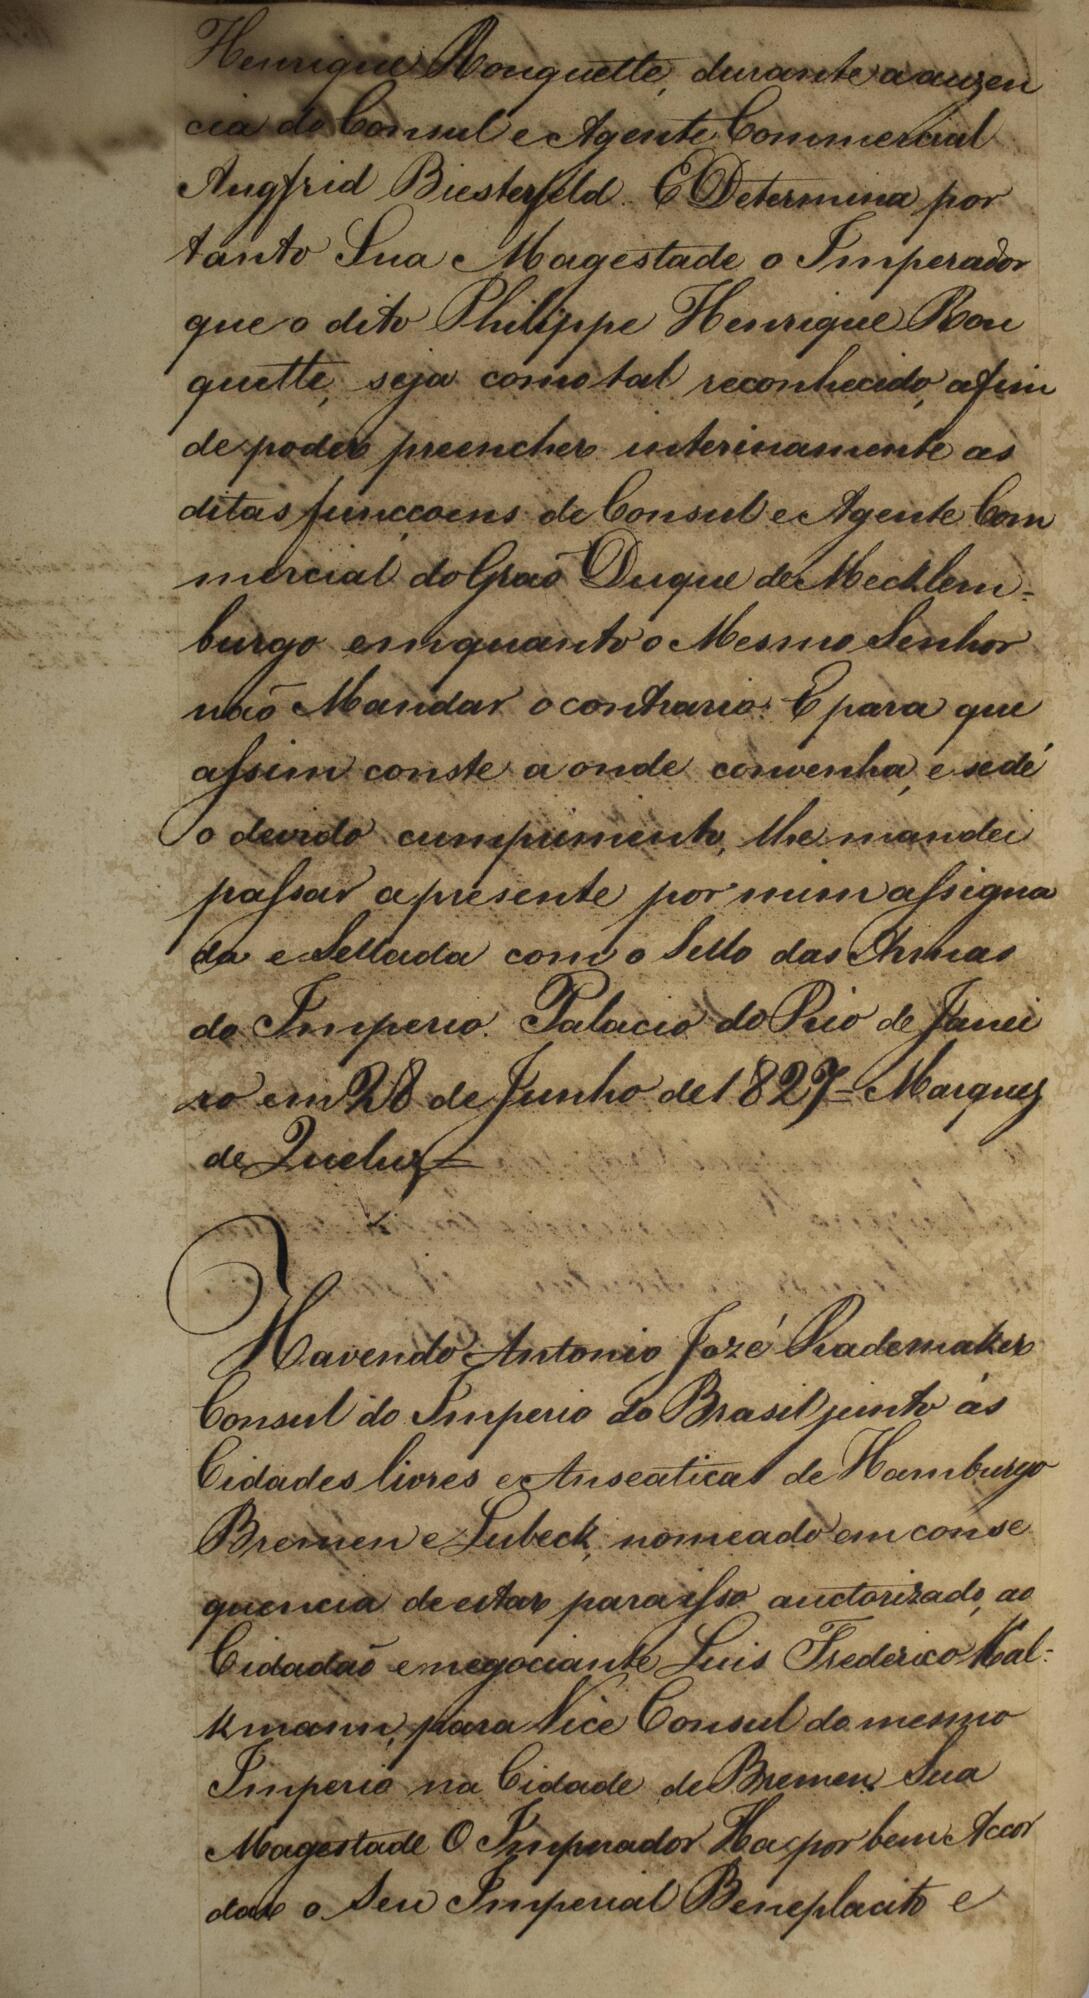 Henrique Rouquette, durante a auzen
cia do Consul e Agente Commercial
Augfrid Biesterfeld. E Determina por
tanto Sua Magestade o Imperador
que o dito Philippe Henrique Rou
quette, seja como tal reconhecido, afim
de poder preencher interinamente as
ditas funccoens de Consul e Agente Com
mercial do Graõ Duque de Mecklem-
burgo emquanto o Mesmo Senhor
naõ Mandar o contrario. E para que
assim conste a onde convenha, e se dê
o devido cumprimento, lhe mandei
passar a presente por mim assigna
da e Sellada com o Sello das Armas
do Imperio. Palacio do Rio de Janei
ro em 28 de Junho de 1827 = Marquez
de Queluz =
Havendo Antonio Jozé Rademaker
Consul do Imperio do Brasil junto ás
Cidades livres e Anseaticas de Hamburgo
Bremen e Lubeck, nomeado em conse
quencia de estar para isso auctorizado, ao
Cidadaõ e negociante Luis Frederico Kal-
kmann, para Vice Consul do mesmo
Imperio na Cidade de Bremen. Sua
Magestade O Imperador Ha por bem Accor
dar o Seu Imperial Beneplacito e